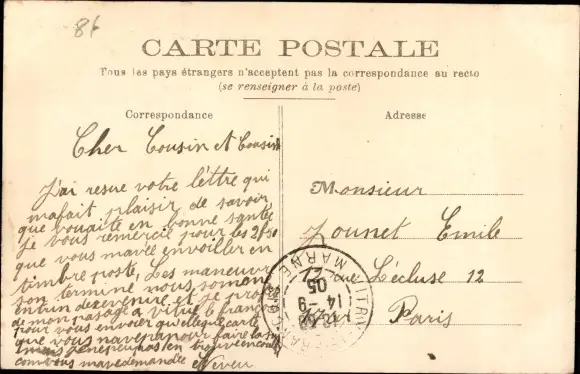 86
CARTE POSTALE
Tous les pays étrangers n'acceptent pas la correspondance au recto
(se renseigner à la poste)
Correspondance
Cher Cousin et Cousin
J'ai resue votre lettre qui
mafait plaisir de savoir
que vouaite en bonne santé
Je vous remercie pour les 2f50
que vous mavée envoiller en
timbre poste, Les maneuvre
son terminé nous somone
entrin de revenire et je
de mon pasage a vitrie le franc
pour vous envoier quelleque carte
que vous navepa pour faire
mais
comvous mavedemandte Neveu
Adresse
Monsieur
Jounet Emile
rue Lécluse 12
Paris
VITRY
MARNE
14-9
05